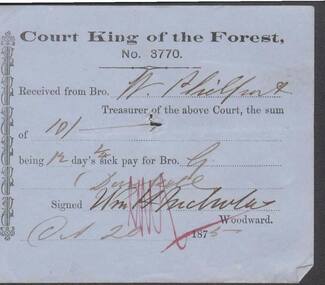 Court King of the Forest,
No. 3770.
Received from Bro. W. Philpott
Treasurer of the above Court, the sum
of 10/
being 12 day's sick pay for Bro. G
Signed Wm H Nicholas
Woodward.
Oct 20 1875